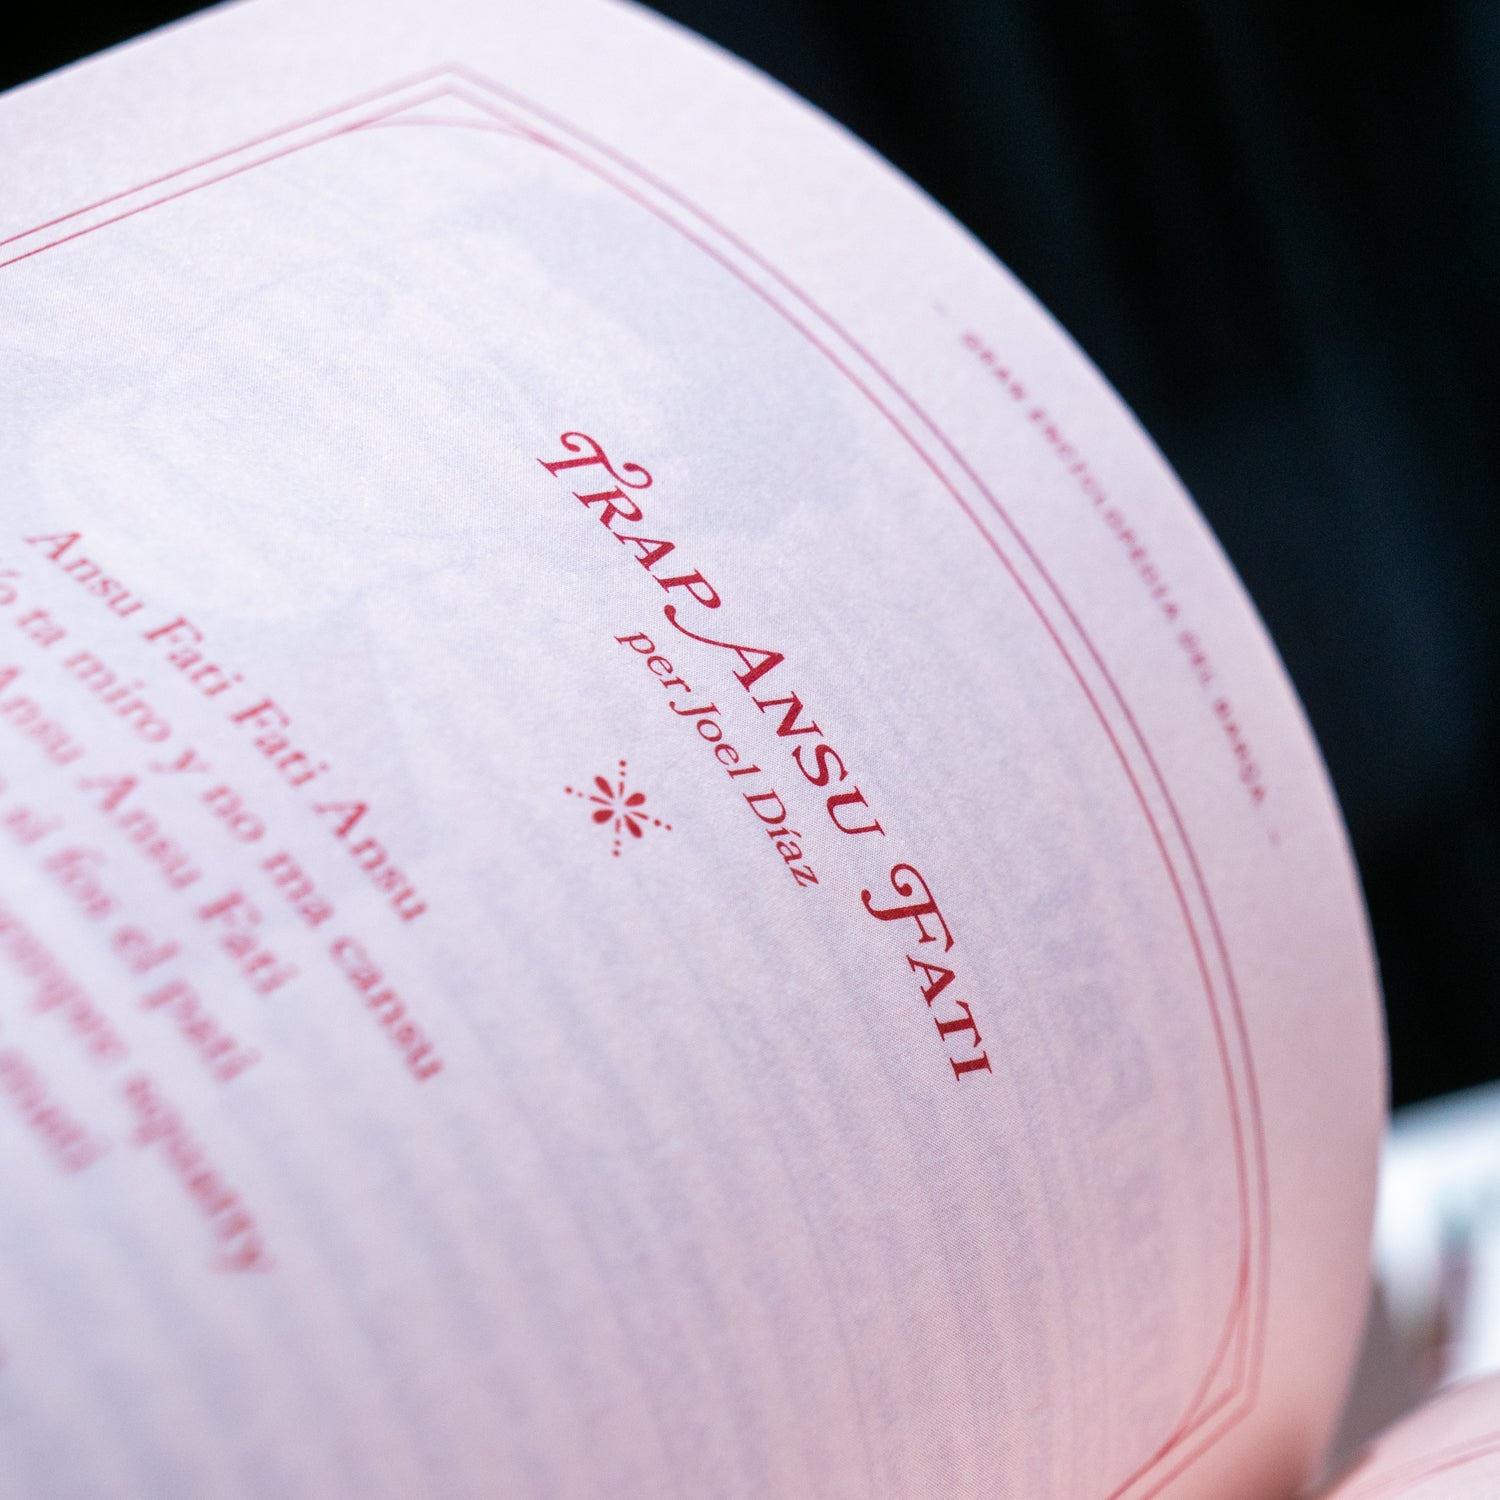 - GRAN ENCICLOPEDIA DEL BARÇA -
TRAP ANSU FATI
per Joel Díaz
Ansu Fati Fati Ansu
Yo ta miro y no ma cansu
Ansu Ansu Fati
si fos el pati
sempre